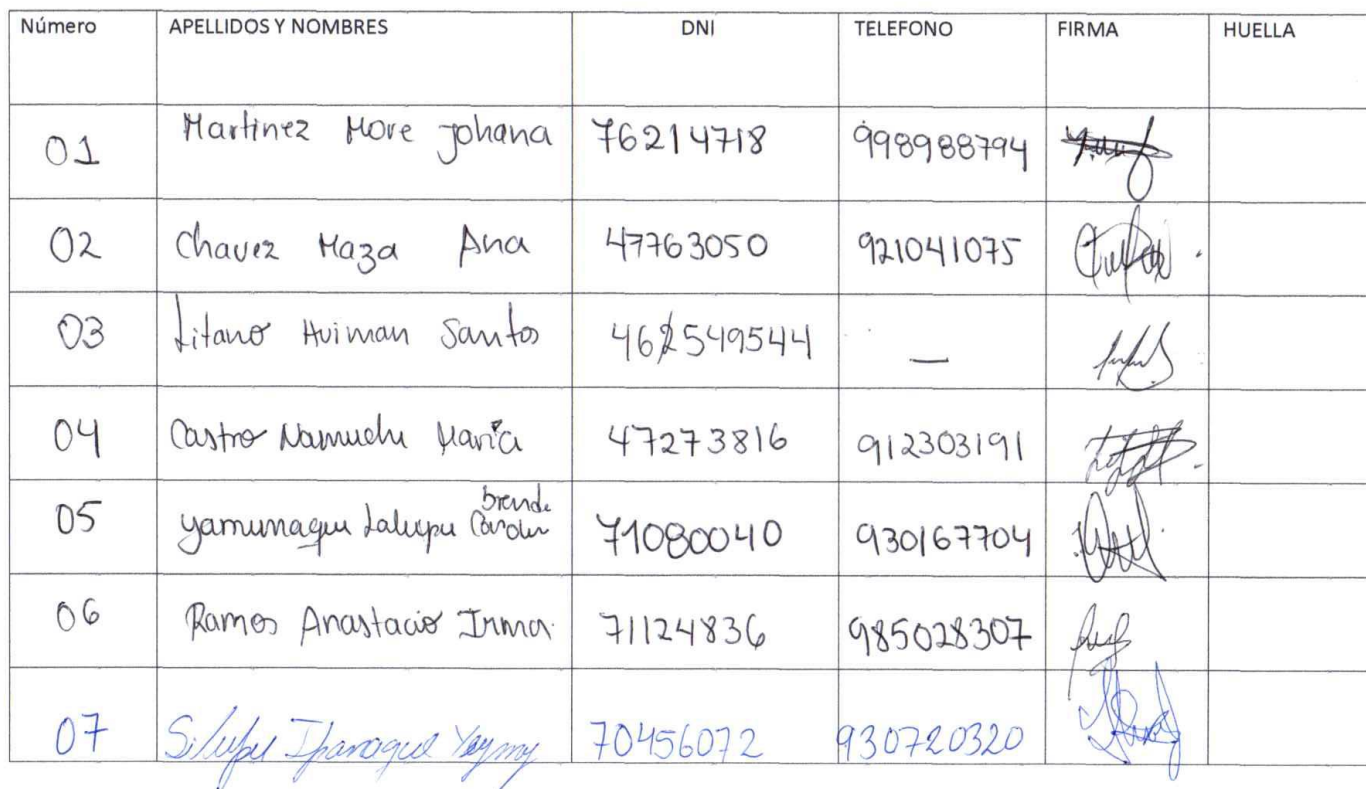 Número APELLIDOS Y NOMBRES DNI TELEFONO FIRMA HUELLA
01 Martinez More Johana 76214718 998988794
02 Chavez Maza Ana 47763050 921041075
03 Litano Huiman Santos 462549544 —
04 Castro Namuche María 47273816 912303191
05 Yamunaque Lalupu Brenda 71080040 930167704
06 Ramos Anastacio Irma 71124836 985028307
07 Silupu Ipanaque Yaymy 70456072 930720320